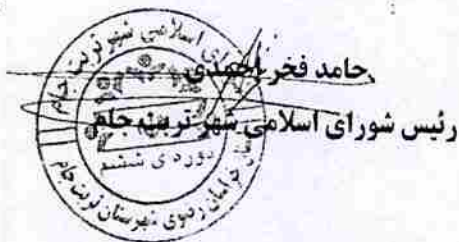 حامد فخر احمدی
رئیس شورای اسلامی شهر تربت جام
شورای اسلامی شهر تربت جام
دوره ی ششم
خراسان رضوی شهرستان تربت جام